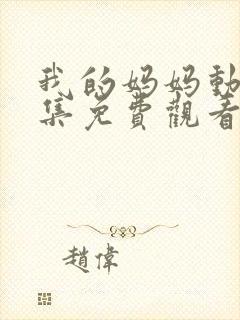 我的妈妈動
集免費觀看
趙偉